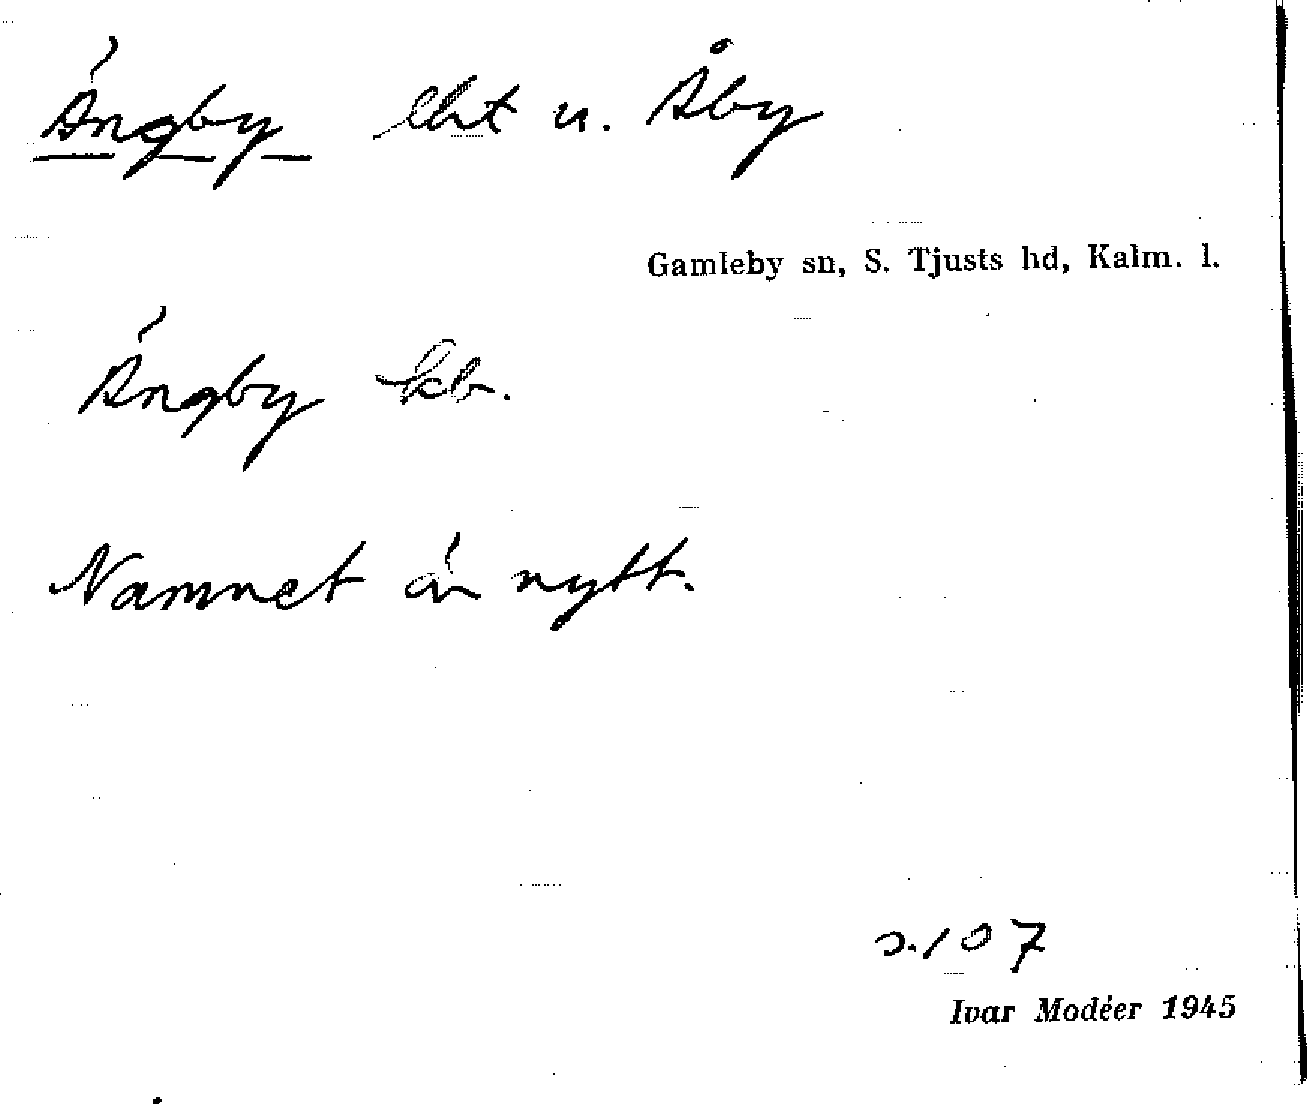 Ängby lht u. Åby
Gamleby sn, S. Tjusts hd, Kalm. l.
Ängby kb.
Namnet är nytt.
s. 107
Ivar Modéer 1945